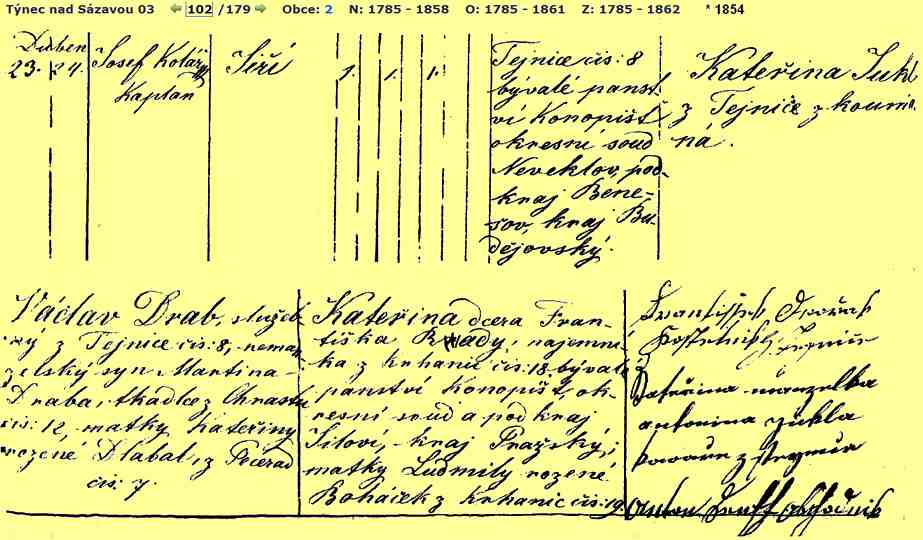 Týnec nad Sázavou 03 102 /179 Obce: 2 N: 1785 - 1858 O: 1785 - 1861 Z: 1785 - 1862 * 1854
Duben
23. 24.
Josef Kolář
Kaplan
Jiří
1. 1. 1.
Tejnice čis: 8
bývalé panst
ví Konopišt
okresní soud
Neveklov, pod-
kraj Bene-
šov, kraj Bu-
dějovský.
Kateřina Suk
z Tejnice z koum
ná.
Václav Drab, služeb
ný z Tejnice čis: 8, neman
zelský syn Martina
Draba, tkadlce z Chrastu
čis: 12, matky Kateřiny
rozené Dlabal, z Pecerad
čis: 7.
Kateřina dcera Fran-
tiška Rady, najemní
ka z Krhanic čis: 18 bývalé
panství Konopišt, ok-
resní soud a pod kraj
Jílové, kraj Pražský;
matky Ludmily rozené
Boháček z Krhanic čis: 19.
František Dvořák
Kateřina manzelka
antonina
kovaře z
Anton